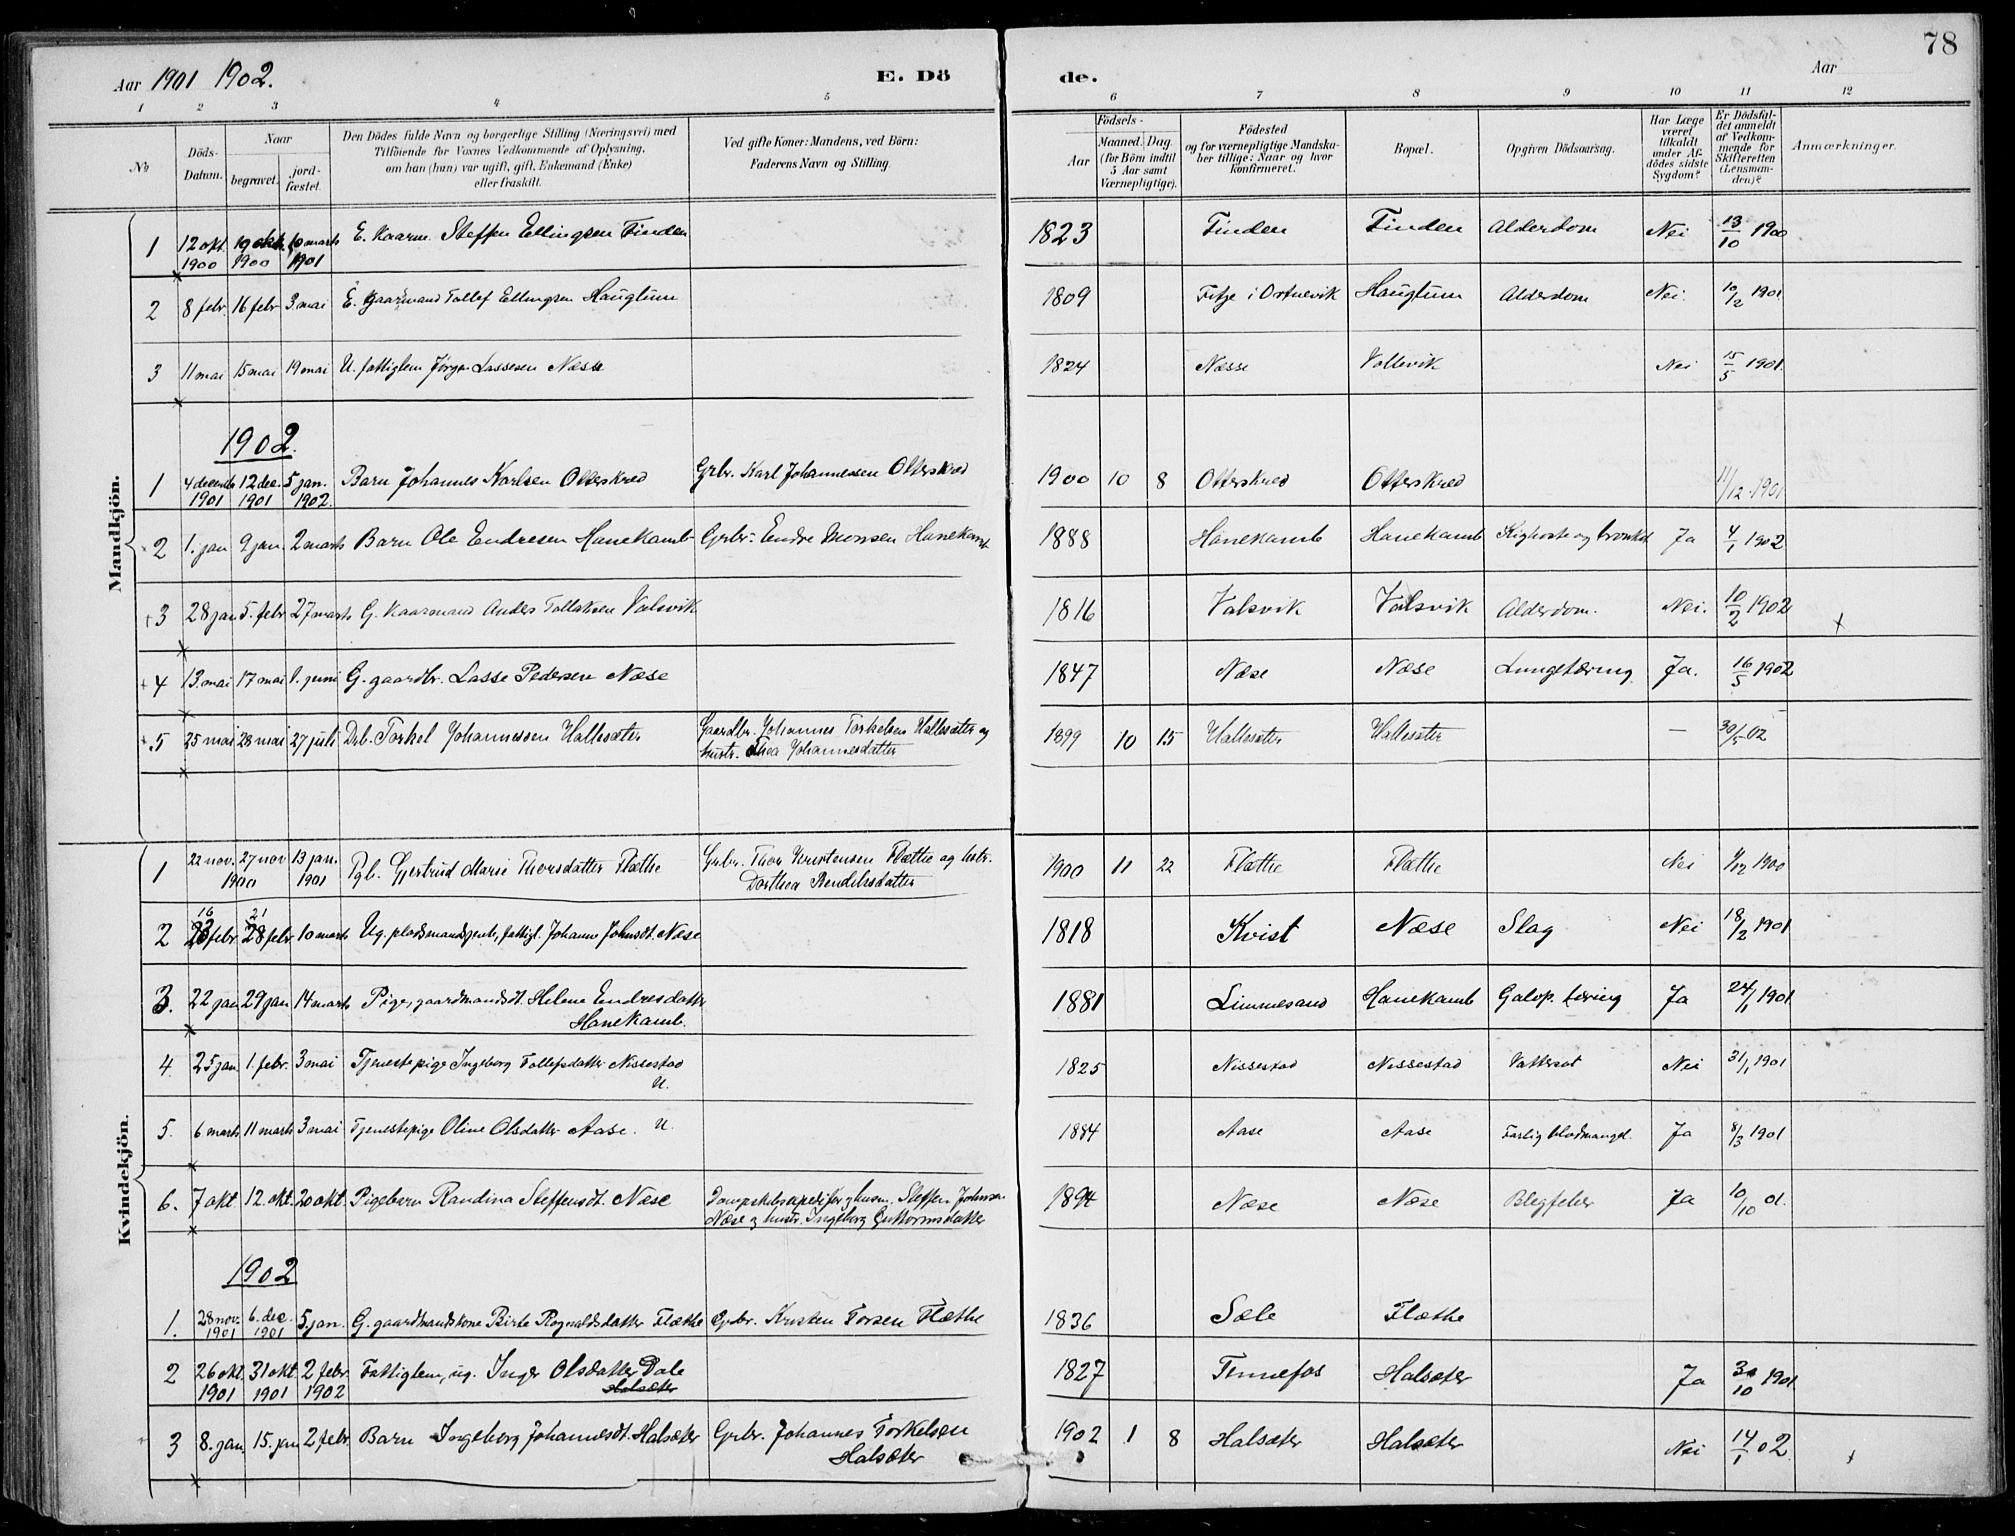 78
Aar 1901 1902.
E. Döde.
Aar
1 2 3 4 5 6 7 8 9 10 11 12
No
Döds-Datum.
Naar
begravet.
jordfæstet.
Den Dödes fulde Navn og borgerlige Stilling (Næringsvei) med
Tilföiende for Voxnes Vedkommende af Oplysning,
om han (hun) var ugift, gift, Enkemand (Enke)
eller fraskilt.
Ved gifte Koner: Mandens, ved Börn:
Faderens Navn og Stilling.
Födsels-
Aar
Maaned. Dag.
(for Börn indtil
5 Aar samt
Værnepligtige).
Födested
og for værnepligtige Mandskaber tillige: Naar og hvor
konfirmeret.
Bopæl.
Opgiven Dödsaarsag.
Har Læge
været
tilkaldt
under Afdödes sidste
Sygdom?
Er Dödsfaldet anmeldt
af Vedkommende for
Skifteretten
(Lensmanden)?
Anmærkninger.
Mandkjön.
1 12 okt 1900 19 okt. 1900 10 marts 1901 E. Kaarm. Steffen Ellingsen Finden 1823 Finden Finden Alderdom Nei 13/10 1900
2 8 febr. 16 febr 3. mai E. gaarmand Tollef Ellingsen Hauglum 1809 Fitje i Ortnevik Hauglum Alderdom Nei. 10/2 1901
3 11 mai 15 mai 19 mai U. fattiglem Lassesen Næsse 1824 Næsse Vollevik Nei 15/5 1901.
1902.
1 4 decemb 1901 12 dec. 1901 5 jan. 1902. Barn Johannes Karlsen Otterskred Grbr. Karl Johannessen Otterskred 1900 10 8 Otterskred Otterskred 11/12 1901
2 1. jan 9 jan. 2 marts Barn Ole Endresen Hanekamb Grbr. Endre Monsen Hanekamb 1888 Hanekamb Hanekamb Kighoste og bronkit Ja 4/1 1902
3 28 jan 5. febr 27 marts G. Kaarmand Anders Tollaksen Valsvik 1816 Valsvik Valsvik Alderdom. Nei. 10/2 1902
4 13. mai 17 mai 1. juni G. gaardbr. Lasse Pedersen Næse 1847 Næse Næse Lungetæring Ja. 16/5 1902
5 25 mai 28 mai 27 juli Drb. Torkel Johannessen Hallesæter Gaardbr. Johannes Torkelsen Hallesæter og
hustr. Thea Johannesdatter 1899 10 15 Hallesæter Hallesæter — 30/5 02
Kvindekjön.
1 22 nov. 27 nov 1900 13 jan. 1901 Pgb. Gjertrud Marie Thorsdatter Flæthe Grbr. Thor Kristensen Flæthe og hstr.
Dorthea Bendiksdatter 1900 11 22 Flæthe Flæthe Nei 1/12 1900
2 16 febr. 21 28 febr. 10 marts Ug. pladsmandsjente, fattigl. Johanne Johnsdt. Næse 1818 Kvist Næse Slag Nei 18/2 1901
3. 22 jan 29 jan 14 marts Pige, gaardmandsdt. Helene Endresdatter
Hanekamb. 1881 Limmesand Hanekamb Galop. tæring Ja 24/1 1901
4. 25 jan 1. febr. 3 mai Tjenestepige Ingeborg Tollefsdatter Nissestad
U. 1825 Nissestad Nissestad Vattersot Nei 31/1 1901
5. 6 marts 11 marts 3 mai Tjenestepige Oline Olsdatter Aase. U. 1884 Aase Aase Farlig blodmangel. Ja 8/3 1901
6. 7 okt 12. okt. 20 okt. Pigebarn Randina Steffensdt. Næse Steffen Johnsen
Næse og hustr. Ingeborg Guttormsdatter 1894 Næse Næse Blegfeber Ja 10/10 01.
1902
1. 28 nov. 1901 6. dec. 1901 5. jan. G. gaardmandskone Birte Rognaldsdatter Flæthe Grbr. Kristen Torsen Flæthe 1836 Sæle Flæthe
2 26 okt. 1901 31 okt. 1901 2 febr. 1902 Fattiglem, ug. Inger Olsdatter Dale
Halsæter 1827 Finnefos Halsæter Ja 1901
3 8. jan. 15. jan 2 febr. Barn Ingeborg Johannesdt. Halsæter Grbr. Johannes Torkelsen
Halsæter 1902 1 8 Halsæter Halsæter Nei 14/1 02.